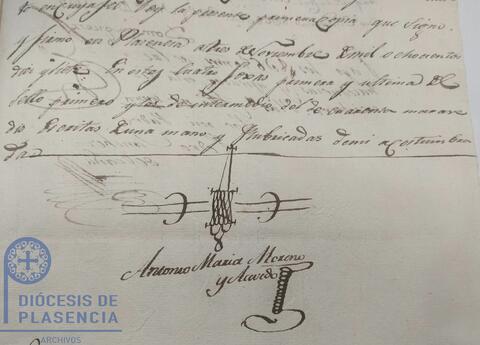 en cuya fee Doy la presente primera copia que signo
y firmo en Plasencia a tres de Noviembre de mil ochocientos
diez y siete En estas cuatro foxas primera y ultima del
sello primero y las de intermedio del de cuarenta marave
dis Escritas de una mano y Rubricadas de mi acostumbra
da=
Antonio Maria Moreno
y Acedo
DIÓCESIS DE
PLASENCIA
ARCHIVOS